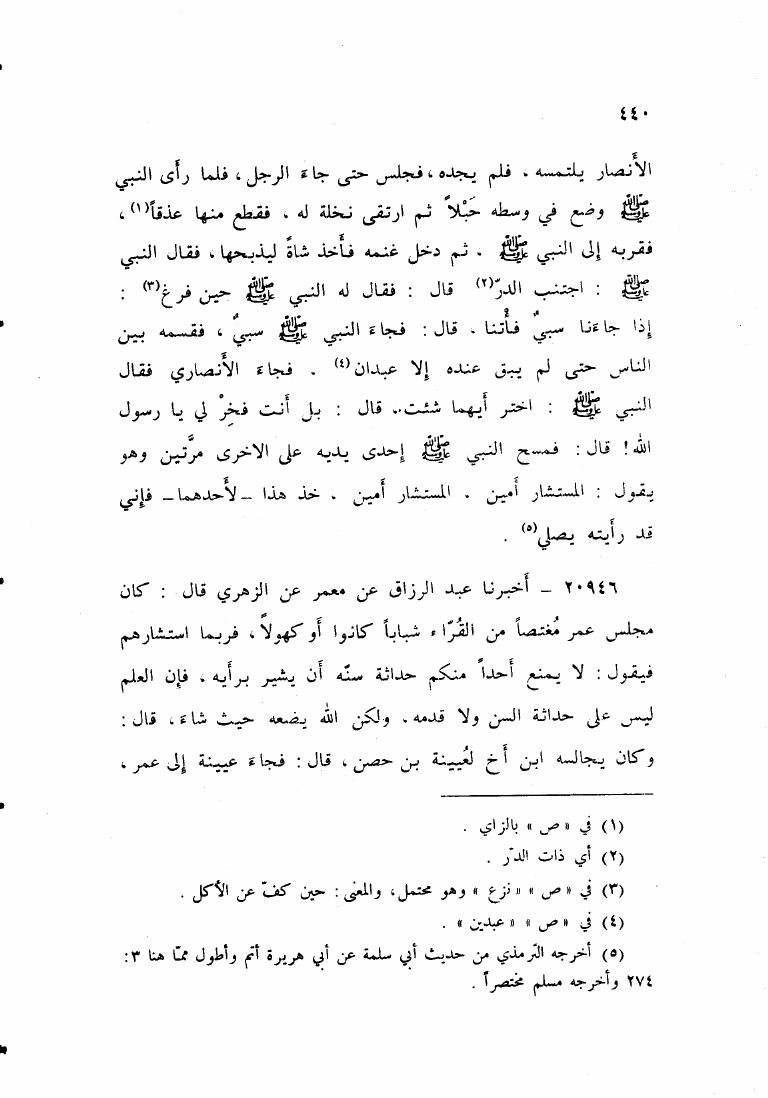 ٤٤٠
الأَنصار يلتمسه ، فلم يجده ، فجلس حتى جاءَ الرجل ، فلما رأَى النبي
ﷺ وضع في وسطه حَبْلاً ثم ارتقى نخلة له ، فقطع منها عذقاً(١) ،
فقربه إلى النبي ﷺ ، ثم دخل غنمه فأَخذ شاةً ليذبحها ، فقال النبي
ﷺ : اجتنب الدرّ(٢) قال : فقال له النبي ﷺ حين فرغ(٣) :
إذا جاءَنا سبيٌ فأْتنا . قال : فجاءَ النبي ﷺ سبيٌ ، فقسمه بين
الناس حتى لم يبق عنده إلا عبدان(٤) . فجاءَ الأَنصاري فقال
النبي ﷺ : اختر أَيهما شئت ، قال : بل أَنت فخِرْ لي يا رسول
الله ! قال : فمسح النبي ﷺ إحدى يديه على الاخرى مرَّتين وهو
يقول : المستشار أَمين ، المستشار أَمين ، خذ هذا – لأَحدهما – فإني
قد رأَيته يصلي(٥) .
٢٠٩٤٦ – أَخبرنا عبد الرزاق عن معمر عن الزهري قال : كان
مجلس عمر مُغتصاً من القُرّاء شباباً كانوا أَو كهولاً ، فربما استشارهم
فيقول : لا يمنع أَحداً منكم حداثة سنّه أَن يشير برأيه ، فإن العلم
ليس على حداثة السن ولا قدمه ، ولكن الله يضعه حيث شاءَ ، قال :
وكان يجالسه ابن أَخ لعُيينة بن حصن ، قال : فجاءَ عيينة إلى عمر ،
(١) في « ص » بالزاي .
(٢) أي ذات الدرّ .
(٣) في « ص » « نزع » وهو محتمل ، والمعنى : حين كفّ عن الأكل .
(٤) في « ص » « عبدين » .
(٥) أخرجه الترمذي من حديث أبي سلمة عن أبي هريرة أتم وأطول ممّا هنا ٣ :
٢٧٤ وأخرجه مسلم مختصراً .